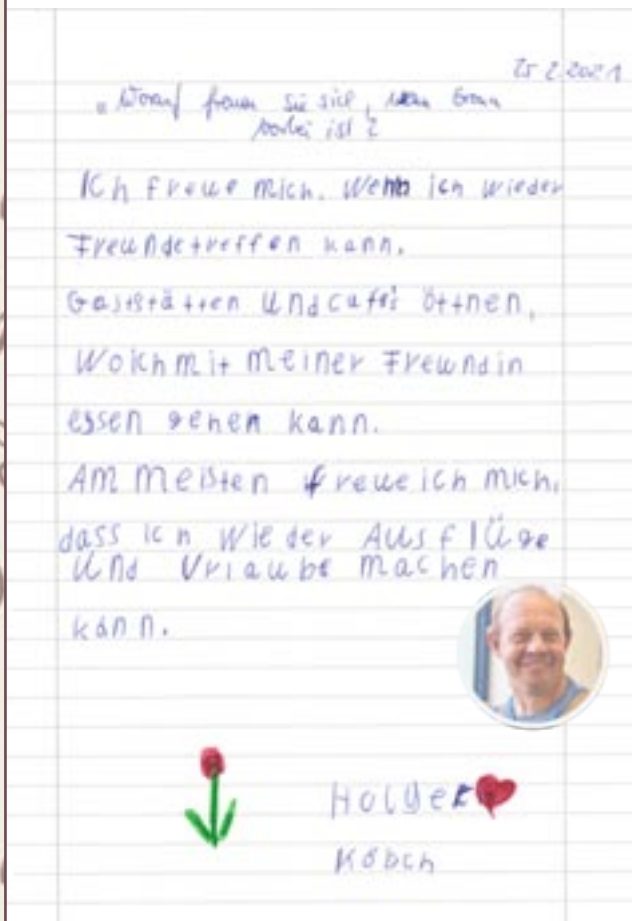 25.2.2021
"Worauf freuen Sie sich, wenn
vorbei ist?
Ich freue mich. Wenn ich wieder
Freunde treffen kann.
Gaststätten und Cafés öffnen,
Wo ich mit meiner Freundin
essen gehen kann.
Am meisten freue ich mich,
dass ich wieder Ausflüge
und Urlaube machen
kann.
Holger